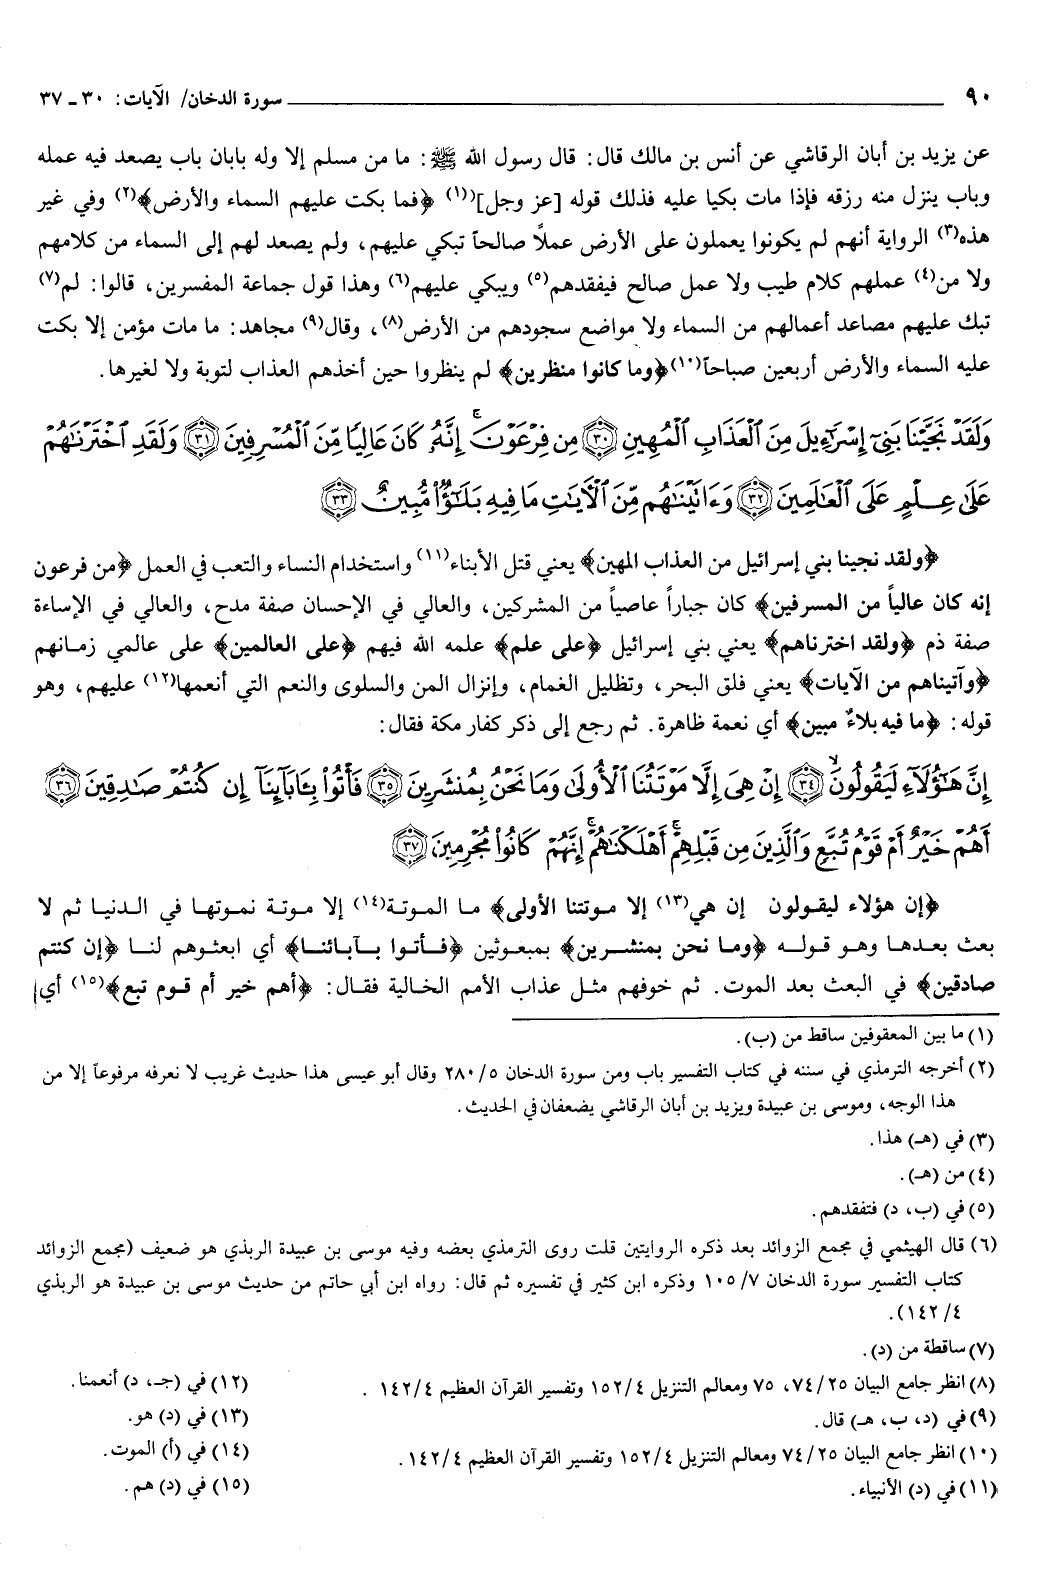 ٩٠ سورة الدخان/ الآيات: ٣٠ ـ ٣٧
عن يزيد بن أبان الرقاشي عن أنس بن مالك قال: قال رسول الله ﷺ: ما من مسلم إلا وله بابان باب يصعد فيه عمله
وباب ينزل منه رزقه فإذا مات بكيا عليه فذلك قوله [عز وجل](١) ﴿فما بكت عليهم السماء والأرض﴾(٢) وفي غير
هذه(٣) الرواية أنهم لم يكونوا يعملون على الأرض عملًا صالحاً تبكي عليهم، ولم يصعد لهم إلى السماء من كلامهم
ولا من(٤) عملهم كلام طيب ولا عمل صالح فيفقدهم(٥) ويبكي عليهم(٦) وهذا قول جماعة المفسرين، قالوا: لم(٧)
تبك عليهم مصاعد أعمالهم من السماء ولا مواضع سجودهم من الأرض(٨)، وقال(٩) مجاهد: ما مات مؤمن إلا بكت
عليه السماء والأرض أربعين صباحاً(١٠) ﴿وما كانوا منظرين﴾ لم ينظروا حين أخذهم العذاب لتوبة ولا لغيرها.
وَلَقَدْ نَجَّيْنَا بَنِىٓ إِسْرَٰٓءِيلَ مِنَ ٱلْعَذَابِ ٱلْمُهِينِ ﴿٣٠﴾ مِن فِرْعَوْنَ ۚ إِنَّهُۥ كَانَ عَالِيًا مِّنَ ٱلْمُسْرِفِينَ ﴿٣١﴾ وَلَقَدِ ٱخْتَرْنَٰهُمْ
عَلَىٰ عِلْمٍ عَلَى ٱلْعَٰلَمِينَ ﴿٣٢﴾ وَءَاتَيْنَٰهُم مِّنَ ٱلْءَايَٰتِ مَا فِيهِ بَلَٰٓؤٌا۟ مُّبِينٌ ﴿٣٣﴾
﴿ولقد نجينا بني إسرائيل من العذاب المهين﴾ يعني قتل الأبناء(١١) واستخدام النساء والتعب في العمل ﴿من فرعون
إنه كان عالياً من المسرفين﴾ كان جباراً عاصياً من المشركين، والعالي في الإحسان صفة مدح، والعالي في الإساءة
صفة ذم ﴿ولقد اخترناهم﴾ يعني بني إسرائيل ﴿على علم﴾ علمه الله فيهم ﴿على العالمين﴾ على عالمي زمانهم
﴿وآتيناهم من الآيات﴾ يعني فلق البحر، وتظليل الغمام، وإنزال المن والسلوى والنعم التي أنعمها(١٢) عليهم، وهو
قوله: ﴿ما فيه بلاءٌ مبين﴾ أي نعمة ظاهرة. ثم رجع إلى ذكر كفار مكة فقال:
إِنَّ هَٰٓؤُلَآءِ لَيَقُولُونَ ۙ ﴿٣٤﴾ إِنْ هِىَ إِلَّا مَوْتَتُنَا ٱلْأُولَىٰ وَمَا نَحْنُ بِمُنشَرِينَ ﴿٣٥﴾ فَأْتُوا۟ بِـَٔابَآئِنَآ إِن كُنتُمْ صَٰدِقِينَ ﴿٣٦﴾
أَهُمْ خَيْرٌ أَمْ قَوْمُ تُبَّعٍ وَٱلَّذِينَ مِن قَبْلِهِمْ ۚ أَهْلَكْنَٰهُمْ ۚ إِنَّهُمْ كَانُوا۟ مُجْرِمِينَ ﴿٣٧﴾
﴿إن هؤلاء ليقولون إن هي(١٣) إلا موتتنا الأولى﴾ ما الموتة(١٤) إلا موتة نموتها في الدنيا ثم لا
بعث بعدها وهو قوله ﴿وما نحن بمنشرين﴾ بمبعوثين ﴿فأتوا بآبائنا﴾ أي ابعثوهم لنا ﴿إن كنتم
صادقين﴾ في البعث بعد الموت. ثم خوفهم مثل عذاب الأمم الخالية فقال: ﴿أهم خير أم قوم تبع﴾(١٥) أي
(١) ما بين المعقوفين ساقط من (ب).
(٢) أخرجه الترمذي في سننه في كتاب التفسير باب ومن سورة الدخان ٢٨٠/٥ وقال أبو عيسى هذا حديث غريب لا نعرفه مرفوعاً إلا من
هذا الوجه، وموسى بن عبيدة ويزيد بن أبان الرقاشي يضعفان في الحديث.
(٣) في (هـ) هذا.
(٤) من (هـ).
(٥) في (ب، د) فتفقدهم.
(٦) قال الهيثمي في مجمع الزوائد بعد ذكره الروايتين قلت روى الترمذي بعضه وفيه موسى بن عبيدة الربذي هو ضعيف (مجمع الزوائد
كتاب التفسير سورة الدخان ١٠٥/٧ وذكره ابن كثير في تفسيره ثم قال: رواه ابن أبي حاتم من حديث موسى بن عبيدة هو الربذي
١٤٢/٤).
(٧) ساقطة من (د).
(٨) انظر جامع البيان ٧٤/٢٥، ٧٥ ومعالم التنزيل ١٥٢/٤ وتفسير القرآن العظيم ١٤٢/٤.
(٩) في (د، ب، هـ) قال.
(١٠) انظر جامع البيان ٧٤/٢٥ ومعالم التنزيل ١٥٢/٤ وتفسير القرآن العظيم ١٤٢/٤.
(١١) في (د) الأنبياء.
(١٢) في (جـ، د) أنعمنا.
(١٣) في (د) هو.
(١٤) في (أ) الموت.
(١٥) في (د) هم.